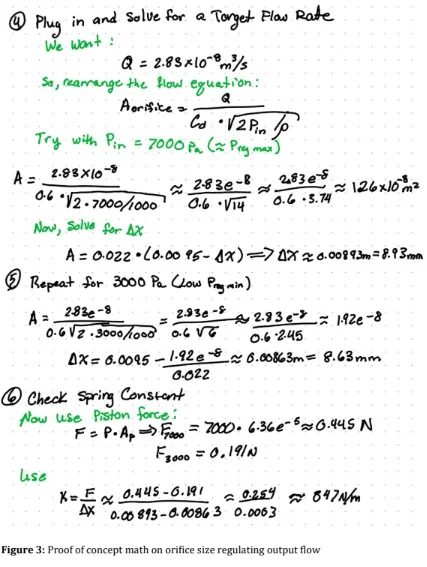 ④ Plug in and Solve for a Target Flow Rate
We Want :
Q = 2.83×10⁻⁸ m³/s
So, rearrange the flow equation:
A orifice = Q / (Cd · √2Pin/ρ)
Try with Pin = 7000 Pa (≈ Preg max)
A = 2.83×10⁻⁸ / (0.6 · √2·7000/1000) ≈ 2.83e-8 / (0.6 · √14) ≈ 2.83e-8 / (0.6 · 3.74) ≈ 1.26×10⁻⁸ m²
Now, Solve for ΔX
A = 0.022 · (0.0095 - ΔX) ⟹ ΔX ≈ 0.00893m = 8.93mm
⑤ Repeat for 3000 Pa (Low Preg min)
A = 2.83e-8 / (0.6 √2·3000/1000) = 2.83e-8 / (0.6 √6) ≈ 2.83e-8 / (0.6·2.45) ≈ 1.92e-8
ΔX = 0.0095 - 1.92e-8 / 0.022 ≈ 0.00863m = 8.63mm
⑥ Check Spring Constant
Now use Piston force:
F = P·Ap ⟹ F7000 = 7000 · 6.36e-5 ≈ 0.445 N
F3000 = 0.191N
Use
K = F/ΔX ≈ (0.445 - 0.191) / (0.00893 - 0.00863) ≈ 0.254 / 0.0003 ≈ 847N/m
Figure 3: Proof of concept math on orifice size regulating output flow